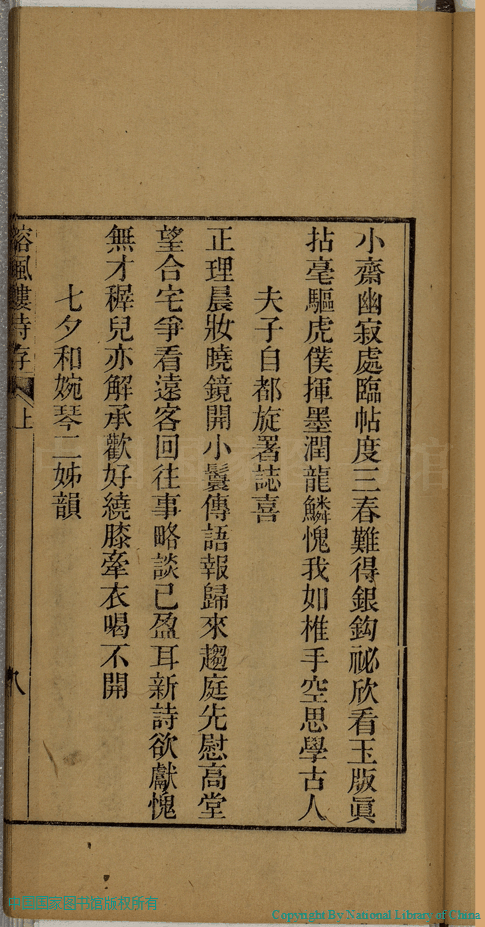 小齋幽寂處臨帖度三春難得銀鈎祕欣看玉版眞
拈毫驅虎僕揮墨潤龍鱗愧我如椎手空思學古人
夫子自都旋署誌喜
正理晨妝曉鏡開小鬟傳語報歸來趨庭先慰高堂
望合宅爭看遠客回往事略談已盈耳新詩欲獻愧
無才穉兒亦解承歡好繞膝牽衣喝不開
七夕和婉琴二姊韻
樓詩存
上
八
中国国家图书馆版权所有
Copyright By National Library of China